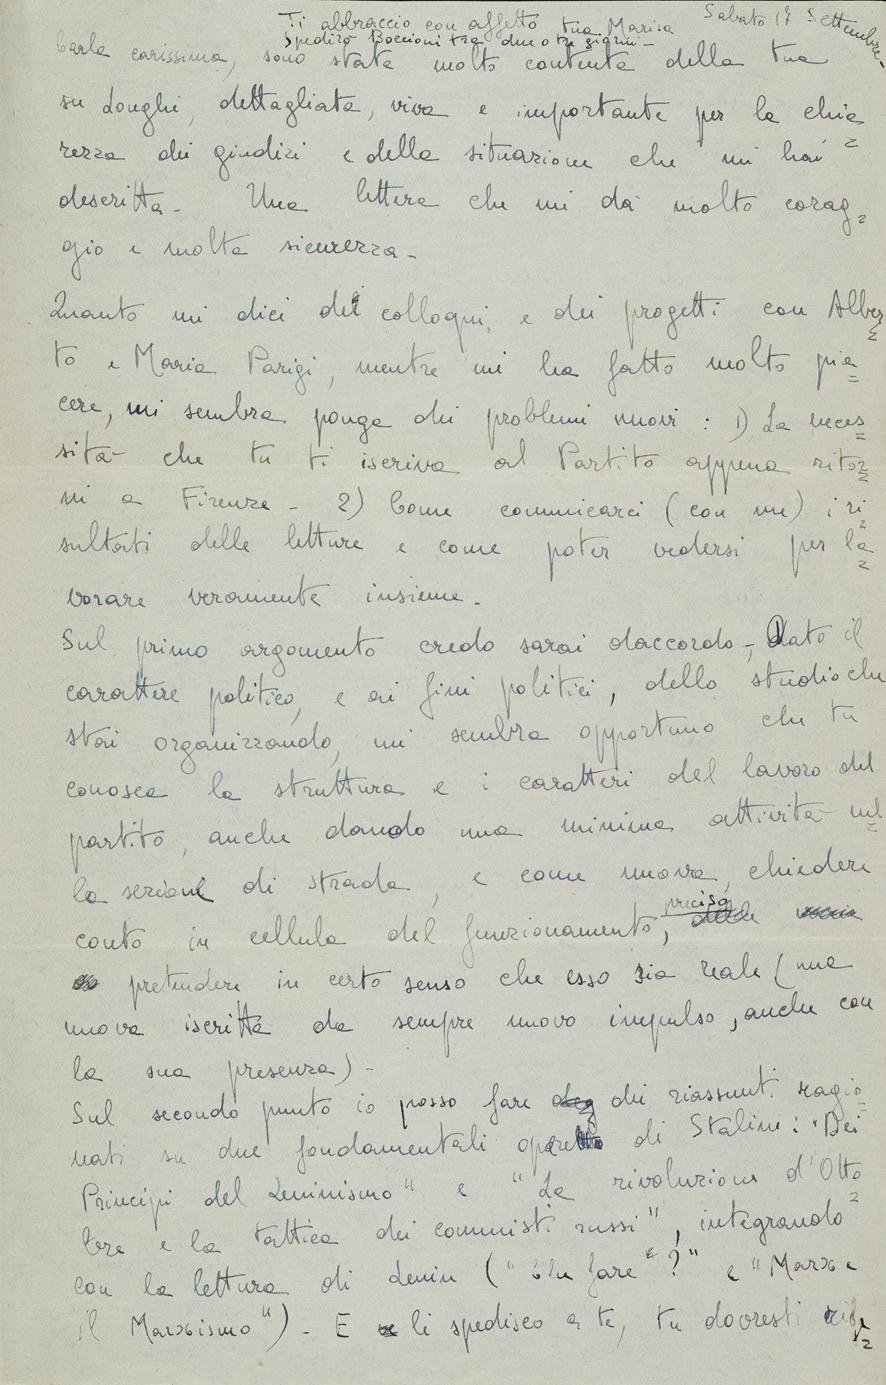 Sabato 17 Settembre.
Ti abbraccio con affetto tua Marisa
Spedirò Boccioni tra due o tre giorni -
Carla carissima, sono stata molto contenta della tua
su Longhi, dettagliata, viva e importante per la chia=
rezza dei giudizi e della situazione che mi hai
descritta - Una lettera che mi dà molto corag=
gio e molta sicurezza -
Quanto mi dici dei colloqui, e dei progetti con Alber=
to e Maria Parigi, mentre mi ha fatto molto pia=
cere, mi sembra ponga dei problemi nuovi: 1) La neces=
sità che tu ti iscriva al Partito appena ritor=
ni a Firenze - 2) Come comunicarci (con me) i ri=
sultati delle letture e come poter vedersi per la=
vorare veramente insieme.
Sul primo argomento credo sarai daccordo -, Dato il
carattere politico, e ai fini politici, dello studio che
stai organizzando, mi sembra opportuno che tu
conosca la struttura e i caratteri del lavoro del
partito, anche dando una minima attività nel=
la sezione di strada, e come nuova, chiedere
conto in cellula del funzionamento, preciso
pretendere in certo senso che esso sia reale (una
nuova iscritta da sempre nuovo impulso, anche con
la sua presenza) -
Sul secondo punto io posso fare dei riassunti ragio=
nati su due fondamentali opere di Stalin: "Dei
Principi del Leninismo" e "La rivoluzione d'Otto=
bre e la tattica dei comunisti russi", integrando
con la lettura di Lenin ("Che fare"?" e "Marx e
il Marxismo") - E li spedisco a te, tu dovresti